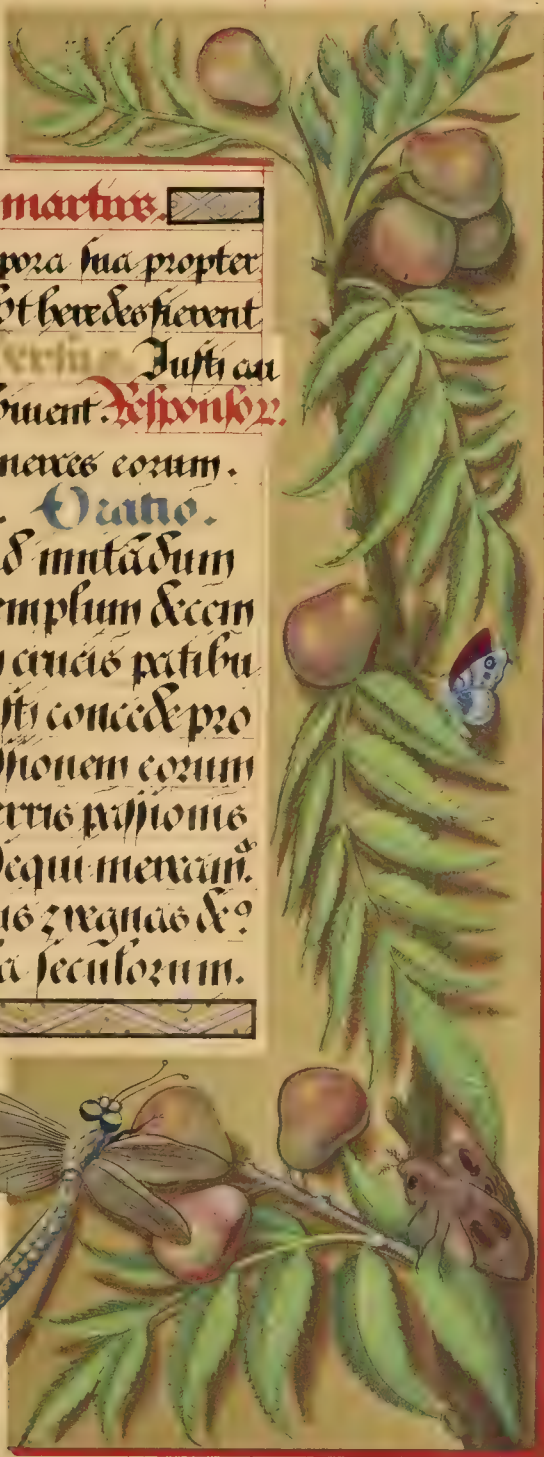 martirs.
pora sua propter
ut heredes fierent
Versus. Justi au
vivent. Responsor.
merces eorum.
. Oratio.
d imitādum
emplum decem
crucis patibu
sti concede pro
ssionem eorum
passionis
sequi meream̄.
us z regnas de9
a seculorum.